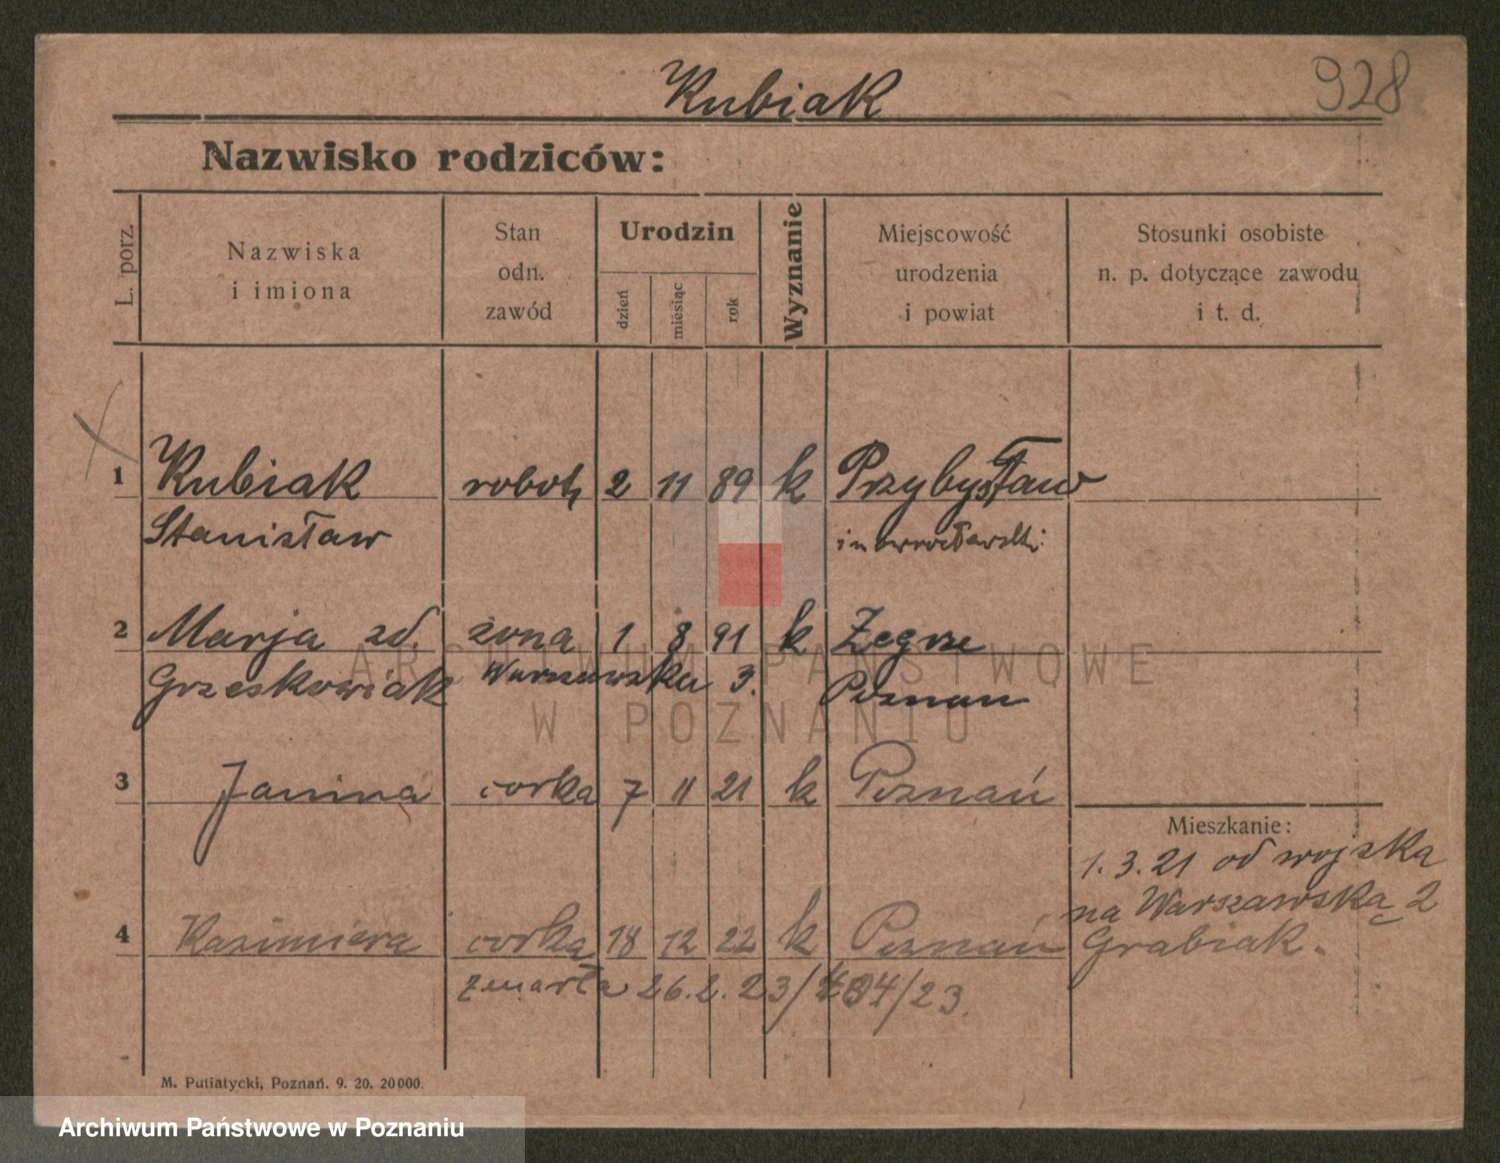 Kubiak
928
Nazwisko rodziców:
L. porz.
Nazwiska
i imiona
Stan
odn.
zawód
Urodzin
dzień
miesiąc
rok
Wyznanie
Miejscowość
urodzenia
i powiat
Stosunki osobiste
n. p. dotyczące zawodu
i t. d.
1 Kubiak robotn 2 11 89 k Przybysław
Stanisław inowrocławski
2 Marja zd. żona 1 8 91 k Zegrze
Grzeskowiak Warszawska 3. Poznan
3 Janina corka 7 11 21 k Poznań
Mieszkanie:
1.3.21 od wojska
na Warszawską 2
Grabiak.
4 Kazimiera corka 18 12 22 k Poznań
zmarła 26.2.23/484/23.
M. Putiatycki, Poznań. 9. 20. 20000.
ARCHIWUM PAŃSTWOWE
W POZNANIU
Archiwum Państwowe w Poznaniu